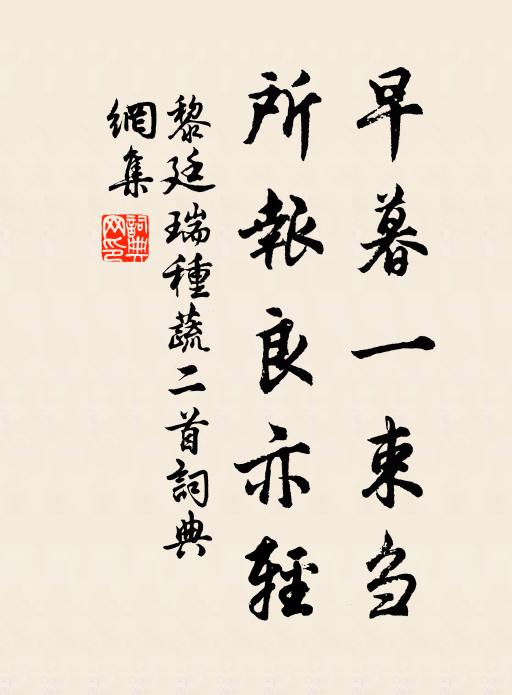 早暮一束刍
所報良亦輕
黎廷瑞種蔬二首詞典
網集
詞典
网印